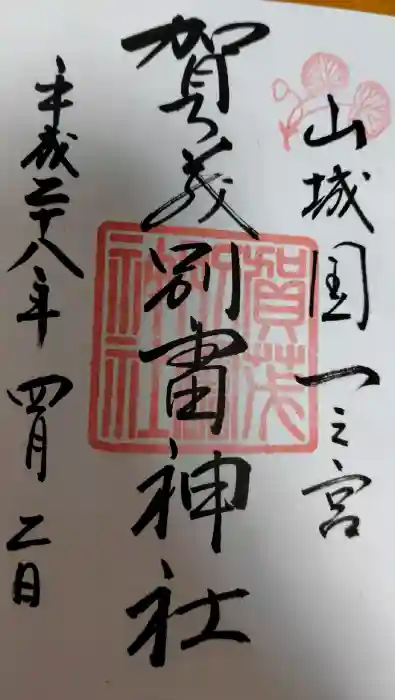 山城国一之宮
賀茂別雷神社
平成二十八年四月二日
賀茂
別雷
神社